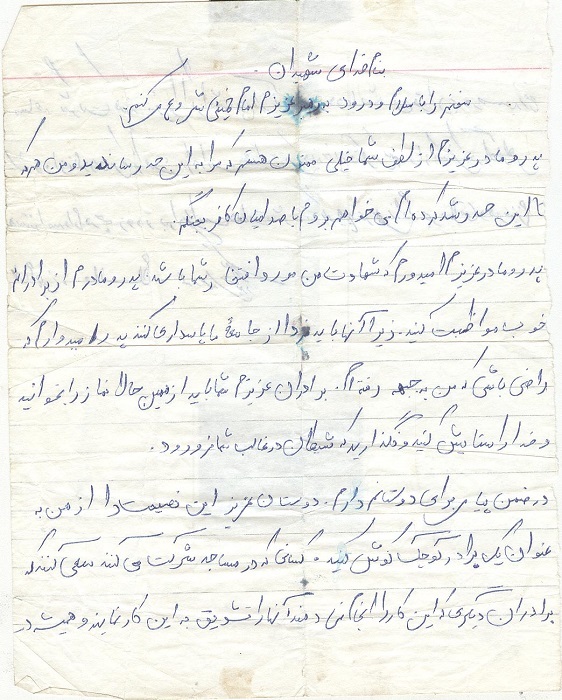 بنام خدای شهیدان.
سخنم را با سلام و درود به رهبر عزیزم امام خمینی شروع می کنم.
پدر و مادر عزیزم از لطف شما خیلی ممنون هستم که مرا به این حد رسانده اید و من هم که
تا این حد رشد کرده ام می خواهم بروم با صدامیان کافر بجنگم.
پدر و مادر عزیزم امیدورم که شهادت من مورد افتخار شما باشد. پدر و مادرم از برادرانم
خوب مواظبت کنید. زیرا آنها باید فردا از جامعهٔ ما پاسداری کنند پدرم امیدوارم که
راضی باشی که من به جبهه رفته ام. برادران عزیزم شما باید از همین حالا نماز را بخوانید
و خدا را ستایش کنید و نگذارید که شیطان در غالب شما فرو رود.
در ضمن پیامی برای دوستانم دارم. دوستان عزیز این نصیحت را از من به
عنوان یک برادر کوچک گوش کنید. کسانی که در مساجد شرکت می کنند سعی کنند که
برادران دیگری که این کار را انجام نمی دهند آنها را تشویق به این کار نمایند و همیشه در